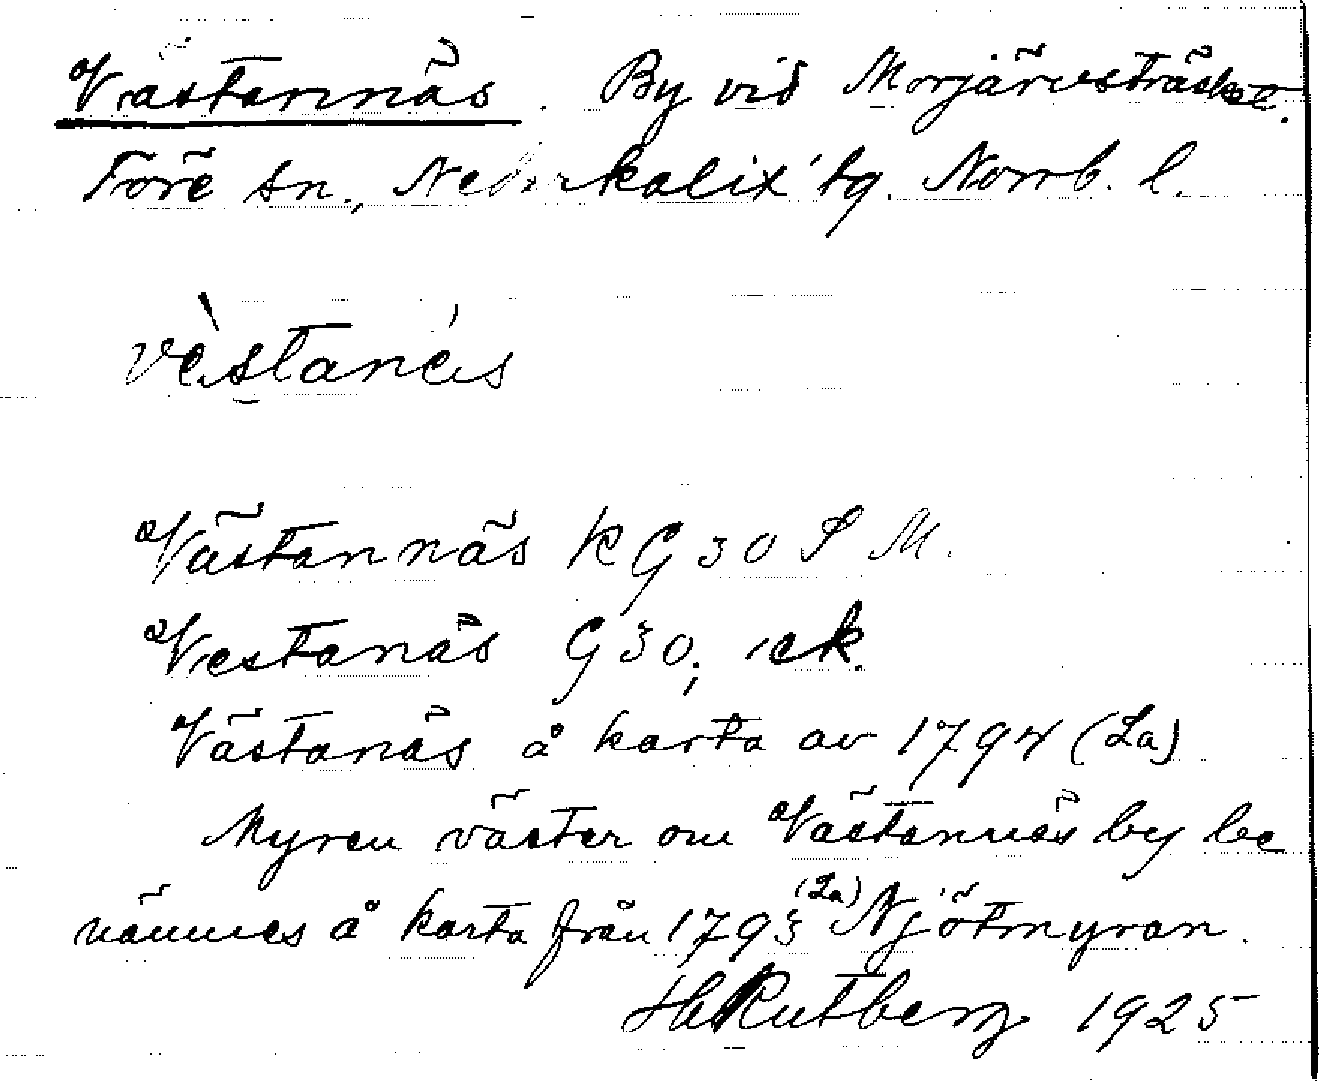 Västannäs. By vid Morjärvsträsket.
Töre sn., Nederkalix tg. Norrb. l.
vèstanés
Västannäs KG30 S M.
Vestanäs G30, ek.
Västanäs å karta av 1794 (La)
Myren väster om Västannäs by be
nämnes å karta från 1793 (La) Njötmyran.
H Rutberg 1925